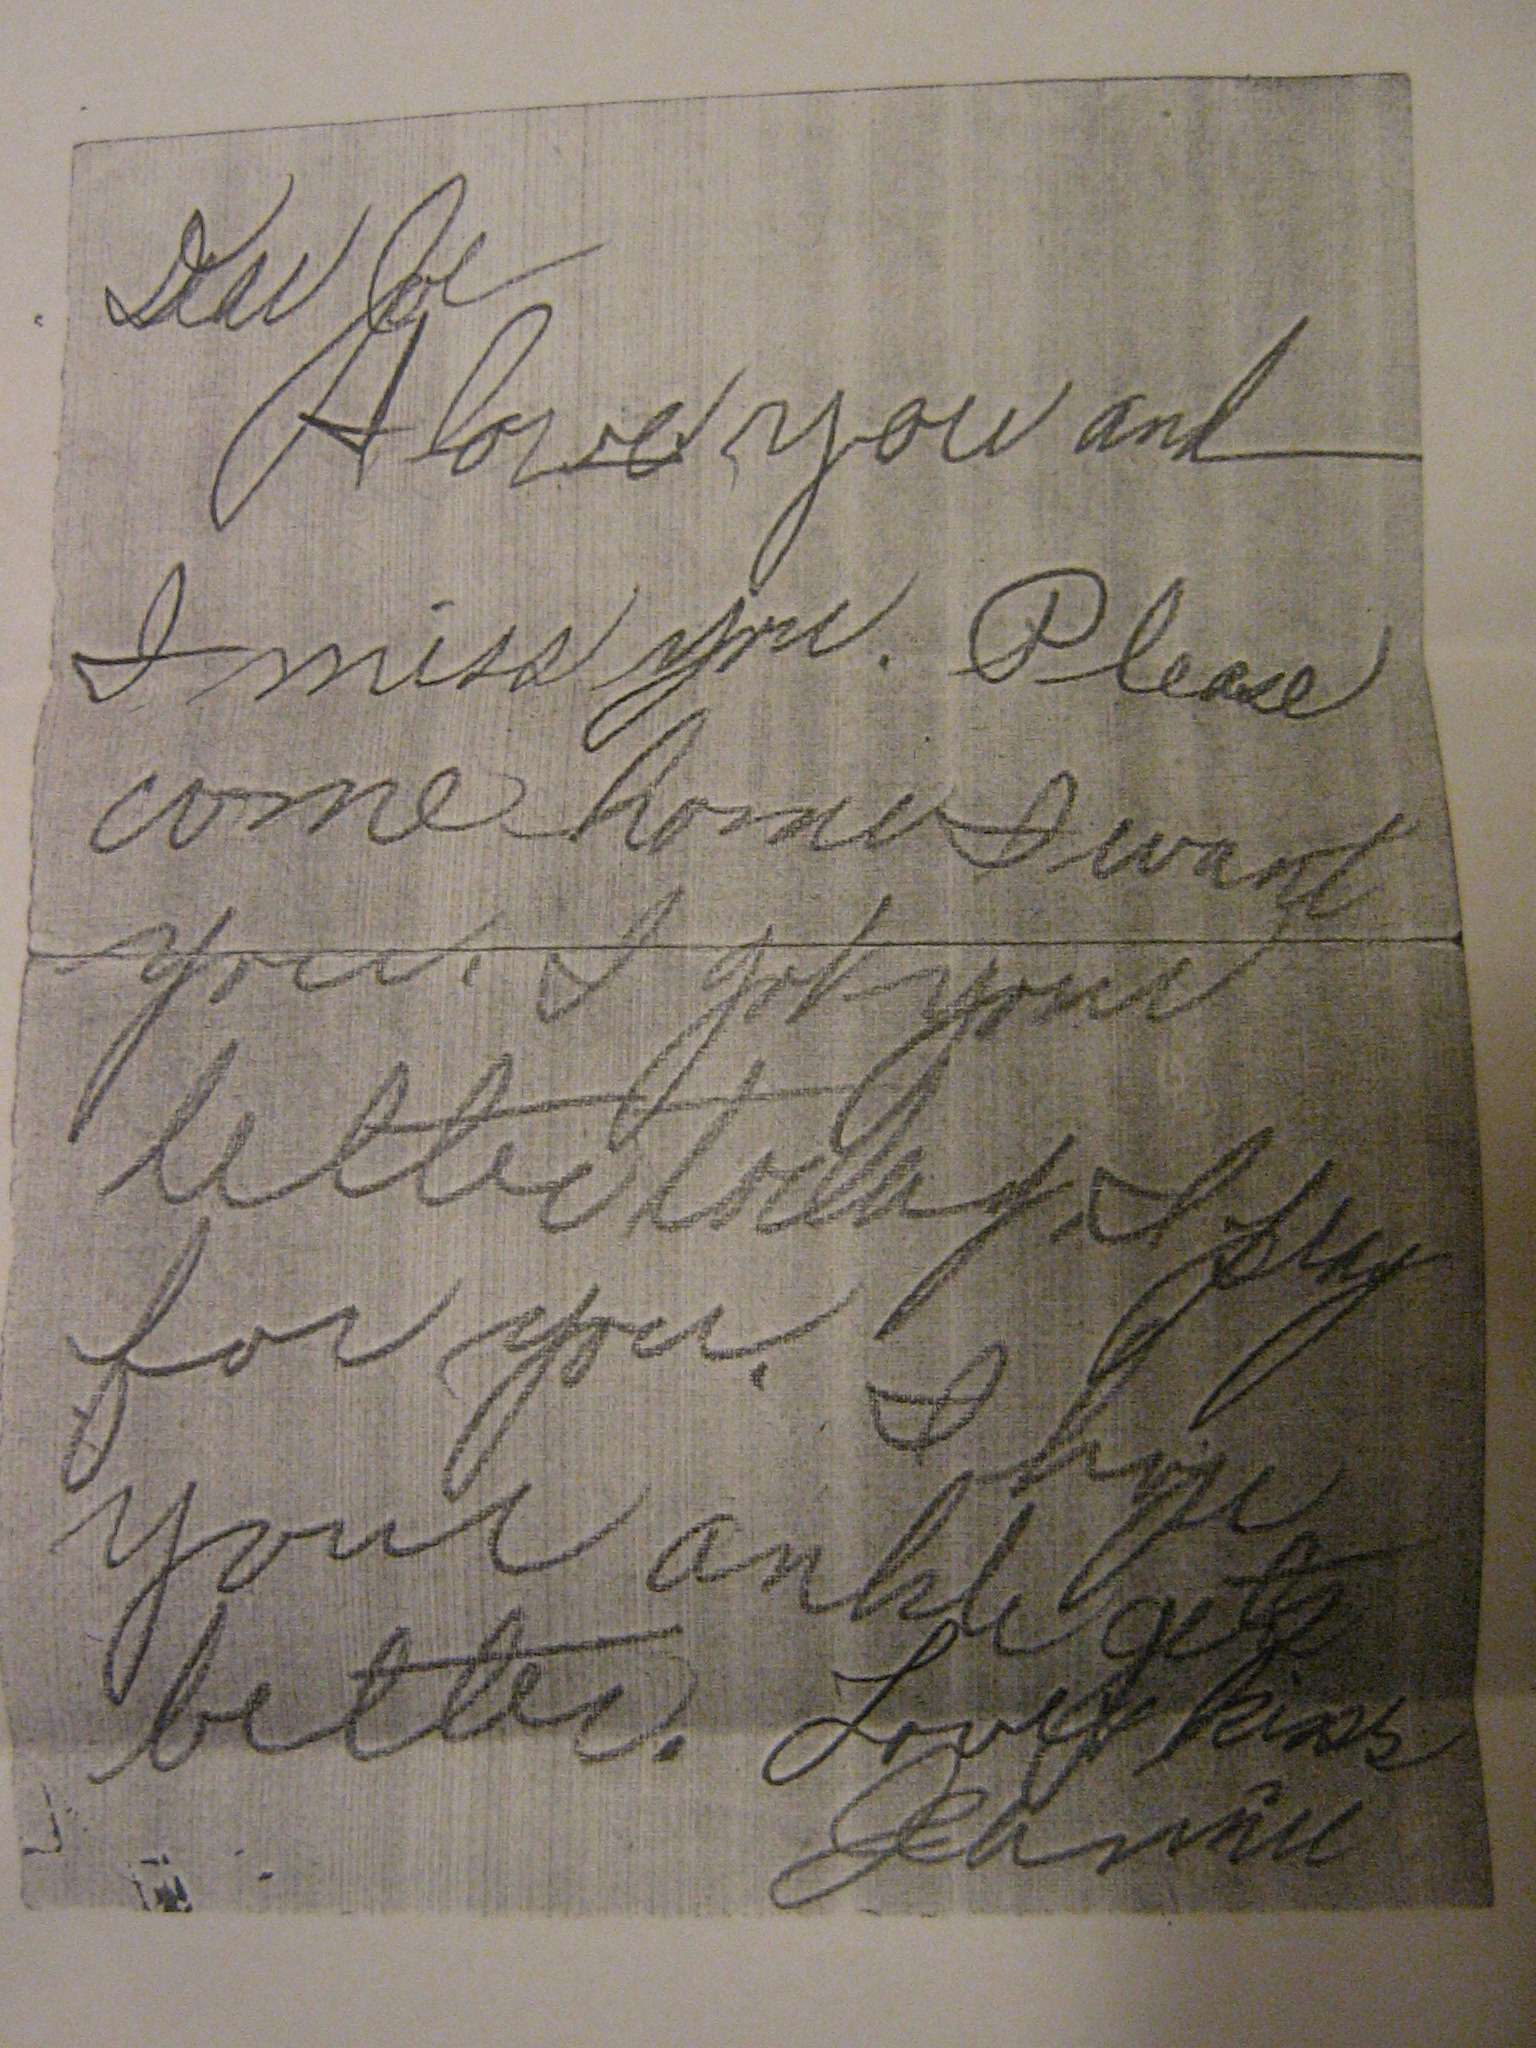 Dear Joe
I love you and
I miss you. Please
come home I want
you. I got your
letter today. I pray
for you. I hope
your ankle gets
better. Love & kiss
Jeannie